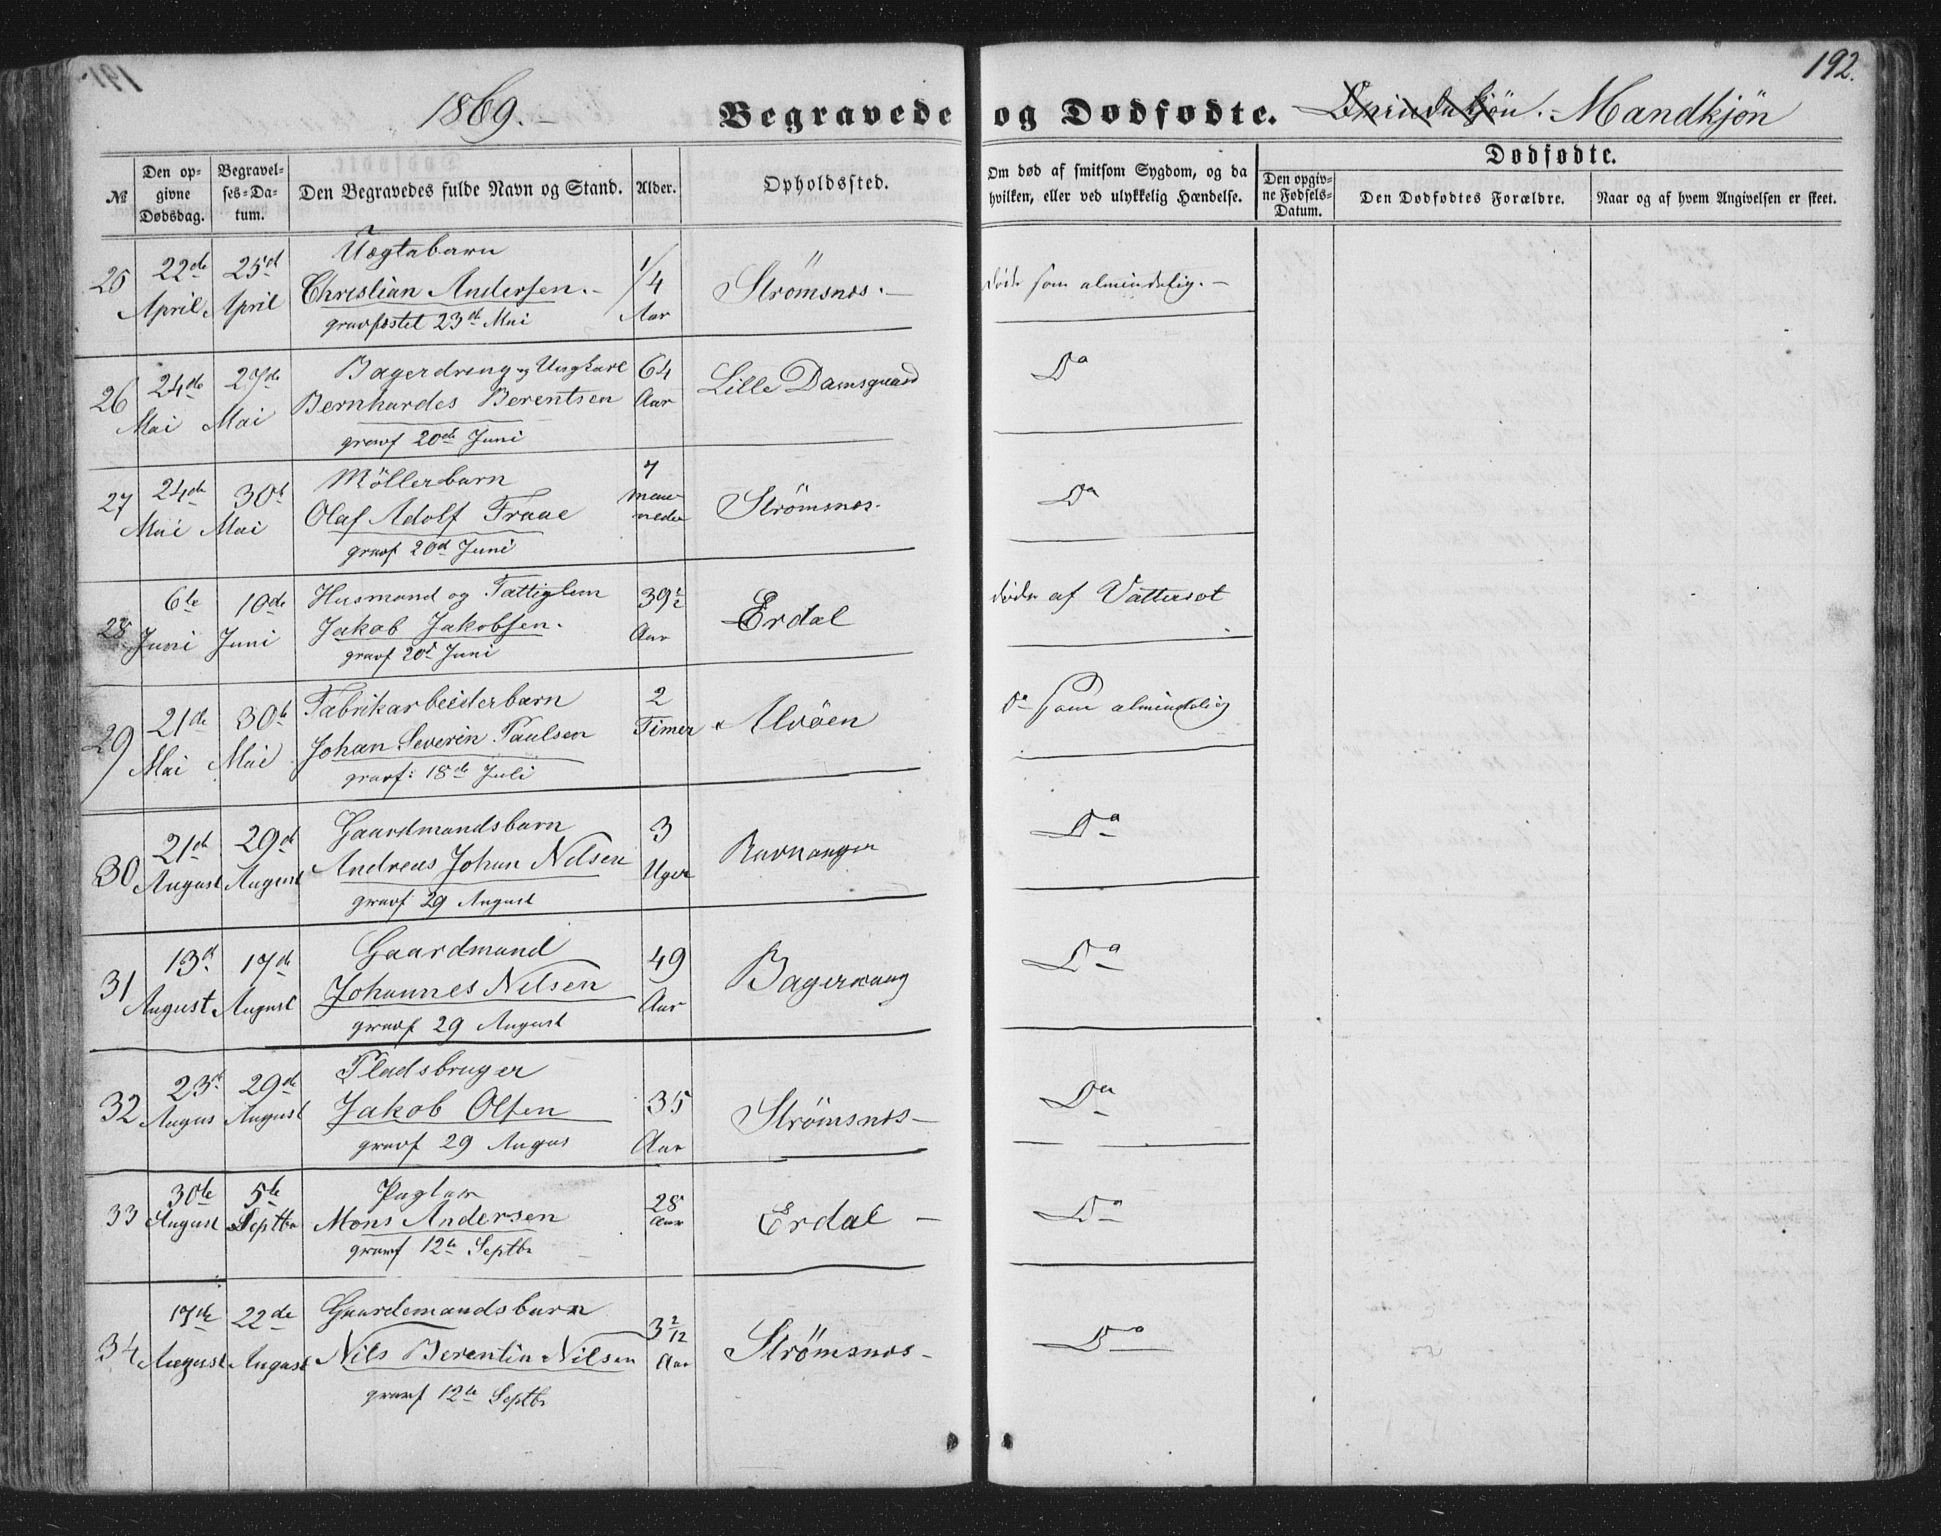 192.
1869. Begravede og Dødfødte. Mandkjön
№ Den opgivne Dødsdag. Begravelses-Datum. Den Begravedes fulde Navn og Stand. Alder. Opholdssted. Om død af smitsom Sygdom, og da hvilken, eller ved ulykkelig Hændelse. Dødfødte. Den opgivne Fødsels-Datum. Den Dødfødtes Forældre. Naar og af hvem Angivelsen er skeet.
25 22de April 25d April
Christian Andersen. 1/4 Aar Strömsnes. døde som almindelig.
gravfæstet 23de Mai
26 24de Mai 27de Mai Bagerdreng og Ungkarl
Bernhardes Berentsen 64 Aar Lille Damsgaard Do
gravf 20de Juni
27 24de Mai 30te Mai Möllerbarn
Olaf Adolf Traae 7 maaneder Strömsnes. Do
gravf 20d Juni
28 6te Juni 10de Juni Husmand og Fattiglem
Jakob Jakobsen. 39½ Aar Erdal døde af Vattersot
gravf 20d Juni
29 21de Mai 30te Mai Fabrikarbeiderbarn
Johan Severin Paulsen 2 Timer Alvöen do som almindelig
gravf: 18de Juli
30 21de August 29d August Gaardmandsbarn
Andreas Johan Nilsen 3 Uger Ravnanger Do
gravf 29 August
31 13d August 17de August Gaardmand
Johannes Nilsen 49 Aar Do
gravf 29 August
32 23d Augus 29de August Pladsbruger
Jakob Olsen 35 Aar Strömsnes Do
gravf 29 Augus
33 30te August 5te Septbr
Mons Andersen 28 Aar Erdal Do
gravf 12te Septbr
34 17de August 22de August Gaardemandsbarn
Nils Berentin Nilsen 3 2/12 Aar Strömsnes Do
gravf 12te Septbr